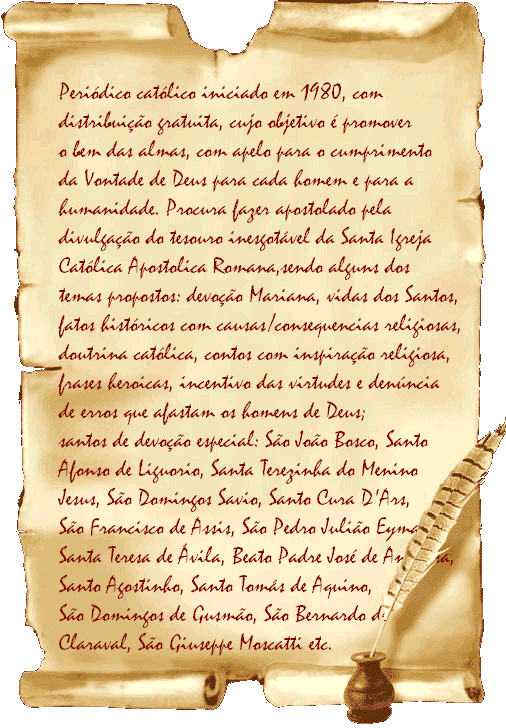 Periódico católico iniciado em 1980, com
distribuição gratuita, cujo objetivo é promover
o bem das almas, com apelo para o cumprimento
da Vontade de Deus para cada homem e para a
humanidade. Procura fazer apostolado pela
divulgação do tesouro inesgotável da Santa Igreja
Católica Apostolica Romana,sendo alguns dos
temas propostos: devoção Mariana, vidas dos Santos,
fatos históricos com causas/consequencias religiosas,
doutrina católica, contos com inspiração religiosa,
frases heroicas, incentivo das virtudes e denúncia
de erros que afastam os homens de Deus;
santos de devoção especial: São João Bosco, Santo
Afonso de Liguorio, Santa Terezinha do Menino
Jesus, São Domingos Savio, Santo Cura D'Ars,
São Francisco de Assis, São Pedro Julião
Santa Teresa de Ávila, Beato Padre José de
Santo Agostinho, Santo Tomás de Aquino,
São Domingos de Gusmão, São Bernardo
Claraval, São Giuseppe Moscatti etc.